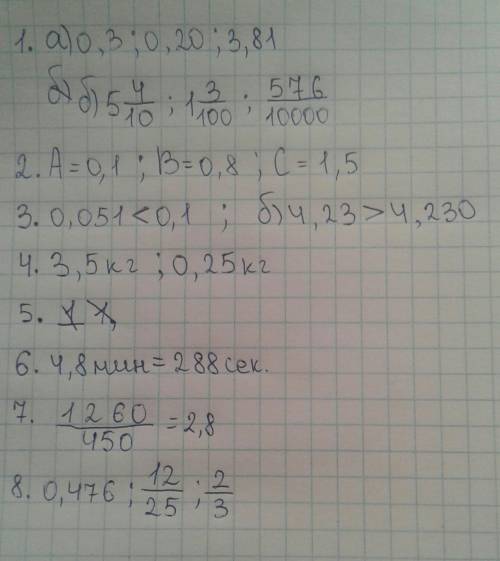 1. а) 0,3 ; 0,20 ; 3,81
б) 5 4/10 ; 1 3/100 ; 576/10000
2. A = 0,1 ; B = 0,8 ; C = 1,5
3. 0,051 < 0,1 ; б) 4,23 > 4,230
4. 3,5 кг ; 0,25 кг
5.
6. 4,8 мин = 288 сек.
7. 1260/450 = 2,8
8. 0,476 ; 12/25 ; 2/3